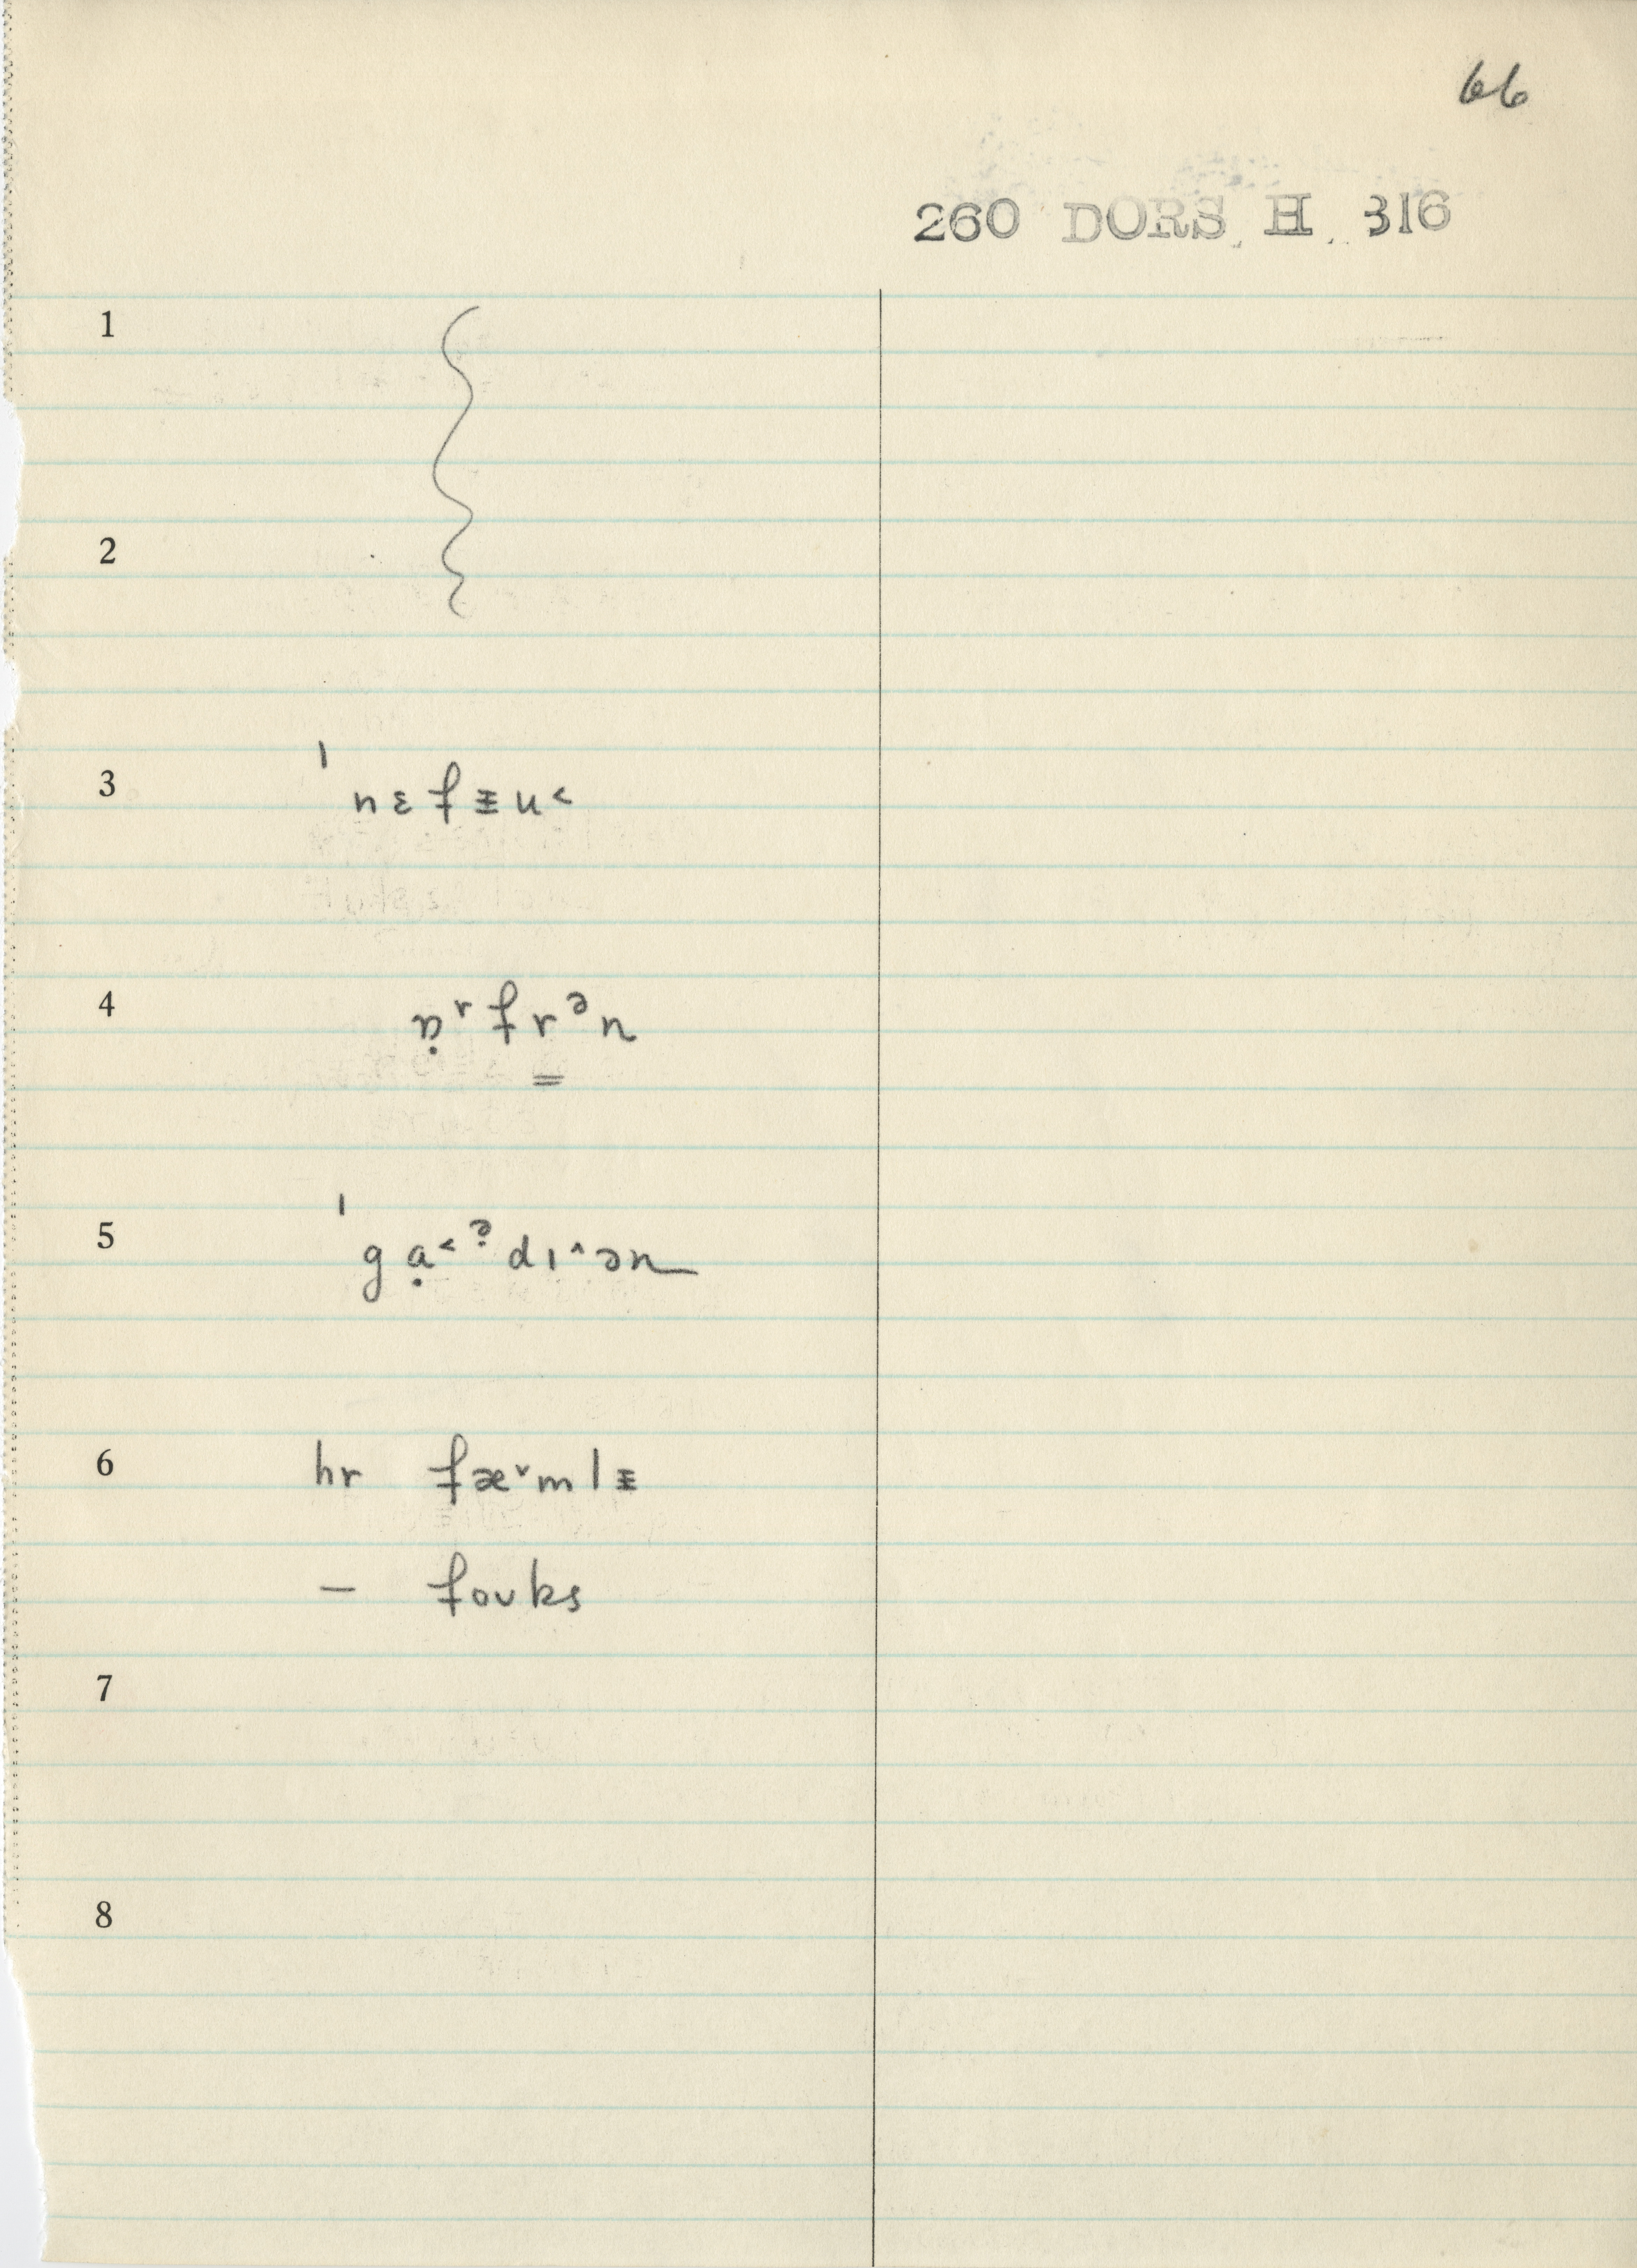 66
260 DORS. H. 316
1
2
3 ˈnɛfɪ̵u˂
4 ɒ̣ʳfrᵊn
5 ˈgạ˂ˀdɪ˄ən
6 hr fæ˅mlɪ̵
– foʊks
7
8